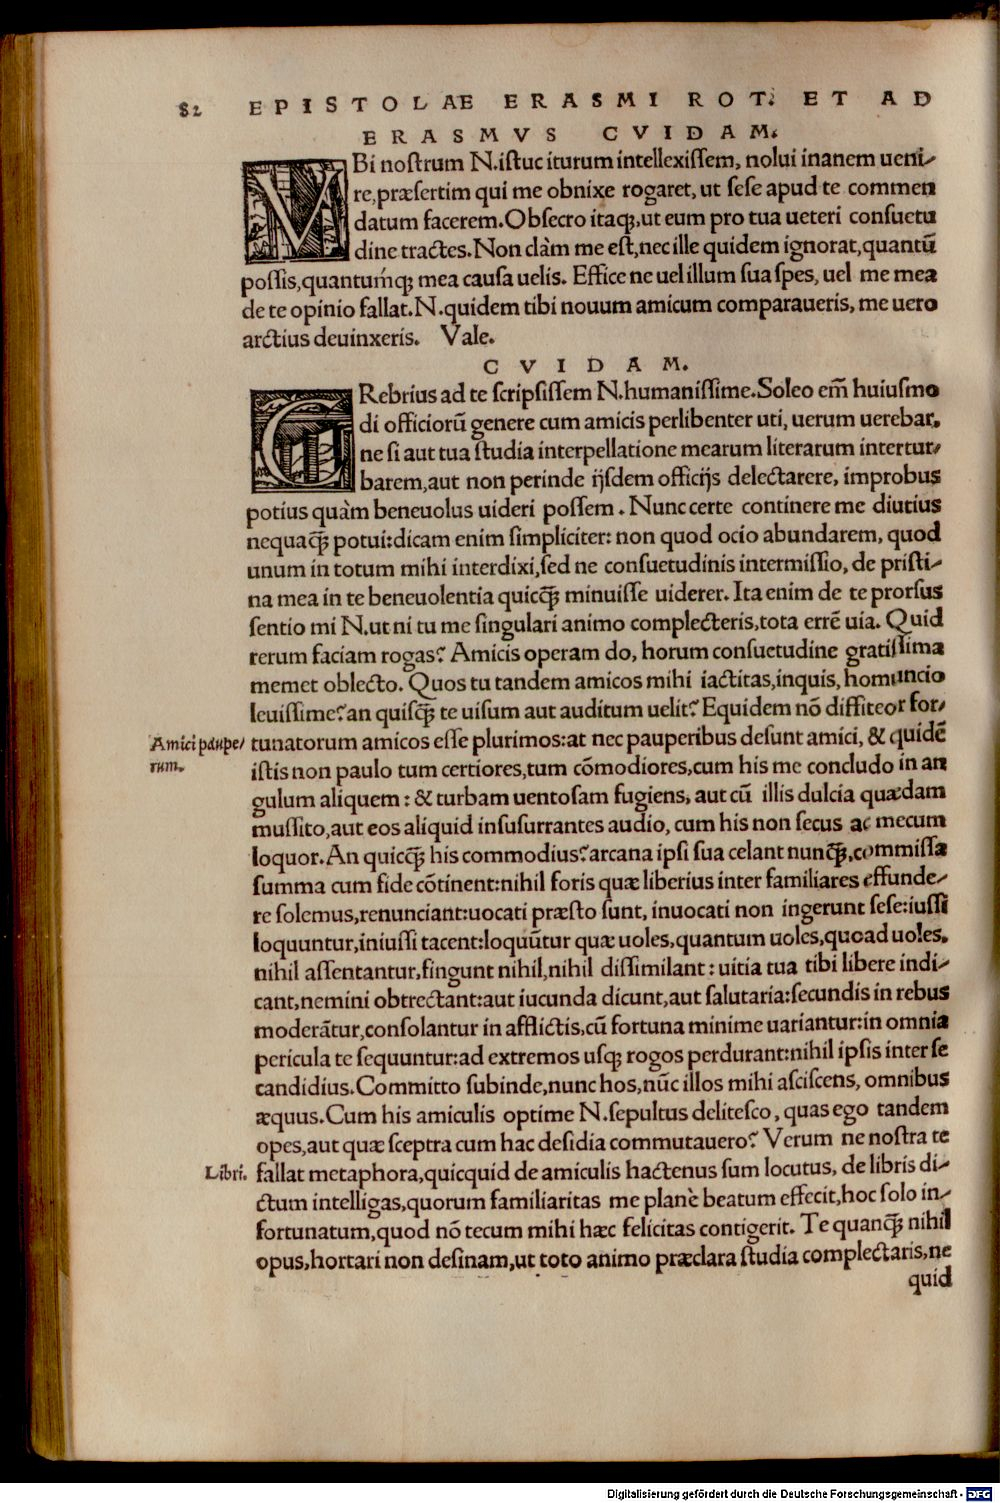 82 EPISTOLAE ERASMI ROT. ET AD
ERASMVS CVIDAM.
VBi noſtrum N.iſtuc iturum intellexiſſem, nolui inanem ueni⸗
re,præſertim qui me obnixe rogaret, ut ſeſe apud te commen
datum facerem.Obſecro itaqꝫ,ut eum pro tua ueteri conſuetu
dine tractes.Non clàm me eſt,nec ille quidem ignorat,quantũ
poſsis,quantumqꝫ mea cauſa uelis. Effice ne uel illum ſua ſpes, uel me mea
de te opinio fallat.N.quidem tibi nouum amicum comparaueris, me uero
arctius deuinxeris. Vale.
CVIDAM.
CRebrius ad te ſcripſiſſem N.humaniſſime.Soleo em̃ huiuſmo
di officiorũ genere cum amicis perlibenter uti, uerum uerebar,
ne ſi aut tua ſtudia interpellatione mearum literarum intertur⸗
barem,aut non perinde ijſdem officijs delectarere, improbus
potius quàm beneuolus uideri poſſem. Nunc certe continere me diutius
nequaq̃ꝫ potui:dicam enim ſimpliciter: non quod ocio abundarem, quod
unum in totum mihi interdixi,ſed ne conſuetudinis intermiſſio, de priſti⸗
na mea in te beneuolentia quicq̃ꝫ minuiſſe uiderer. Ita enim de te prorſus
ſentio mi N.ut ni tu me ſingulari animo complecteris,tota errẽ uia. Quid
rerum faciam rogas? Amicis operam do, horum conſuetudine gratiſſima
memet oblecto. Quos tu tandem amicos mihi iactitas,inquis, homuncio
leuiſſime? an quiſq̃ꝫ te uiſum aut auditum uelit? Equidem nõ diffiteor for⸗
Amici paupe⸗ tunatorum amicos eſſe plurimos:at nec pauperibus deſunt amici, & quidẽ
rum. iſtis non paulo tum certiores,tum cõmodiores,cum his me concludo in an
gulum aliquem: & turbam uentoſam fugiens, aut cũ illis dulcia quædam
muſſito,aut eos aliquid inſuſurrantes audio, cum his non ſecus ac mecum
loquor.An quicq̃ꝫ his commodius? arcana ipſi ſua celant nunq̃ꝫ,commiſſa
ſumma cum fide cõtinent:nihil foris quæ liberius inter familiares effunde⸗
re ſolemus,renunciant:uocati præſto ſunt, inuocati non ingerunt ſeſe:iuſſi
loquuntur,iniuſſi tacent:loquũtur quæ uoles,quantum uoles,quoad uoles.
nihil aſſentantur,fingunt nihil,nihil diſſimilant: uitia tua tibi libere indi⸗
cant,nemini obtrectant:aut iucunda dicunt,aut ſalutaria:ſecundis in rebus
moderãtur,conſolantur in afflictis,cũ fortuna minime uariantur:in omnia
pericula te ſequuntur:ad extremos uſqꝫ rogos perdurant:nihil ipſis inter ſe
candidius.Committo ſubinde,nunc hos,nũc illos mihi aſciſcens, omnibus
æquus.Cum his amiculis optime N.ſepultus deliteſco, quas ego tandem
opes,aut quæ ſceptra cum hac deſidia commutauero? Verum ne noſtra te
Libri. fallat metaphora,quicquid de amiculis hactenus ſum locutus, de libris di⸗
ctum intelligas,quorum familiaritas me planè beatum effecit,hoc ſolo in⸗
fortunatum,quod nõ tecum mihi hæc felicitas contigerit. Te quanq̃ꝫ nihil
opus,hortari non deſinam,ut toto animo præclara ſtudia complectaris,ne
quid
Digitalisierung gefördert durch die Deutsche Forschungsgemeinschaft - DFG